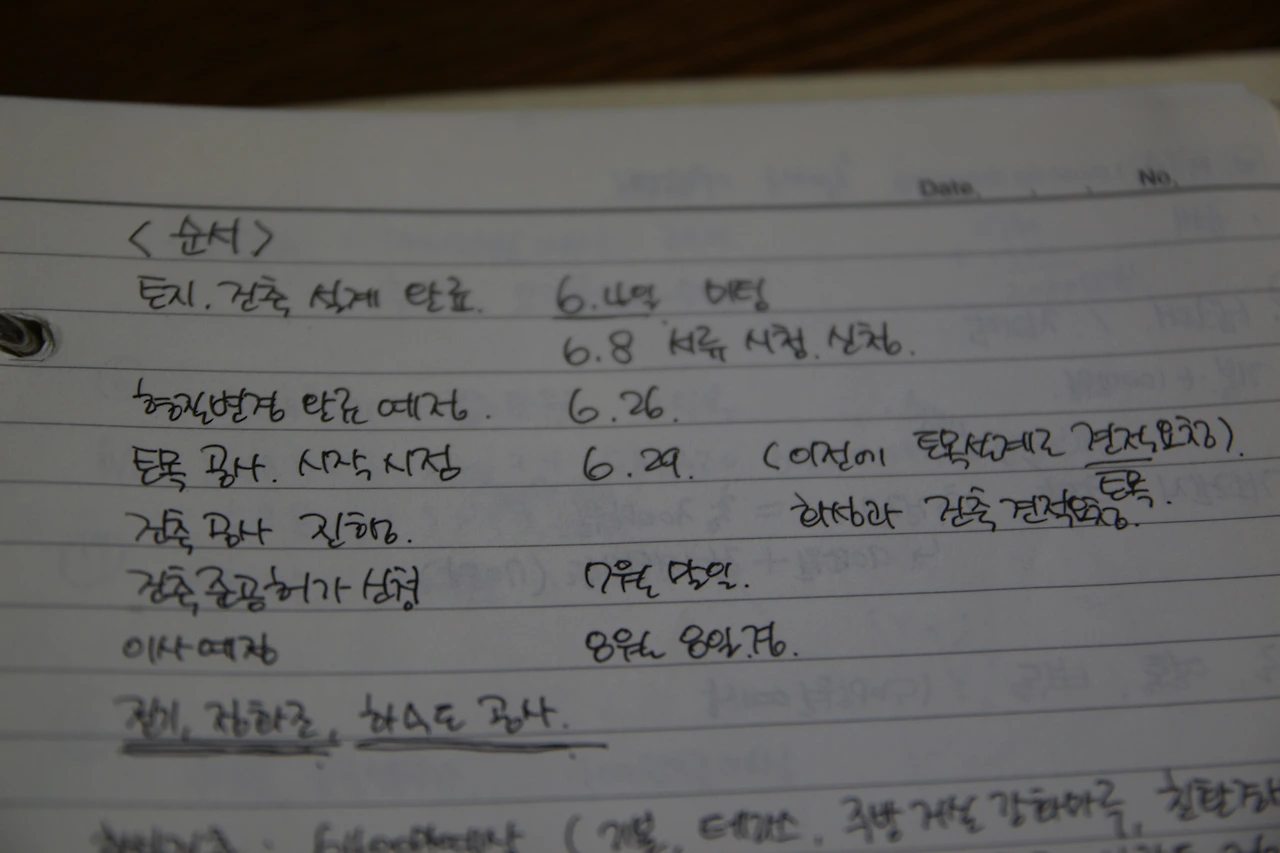 Date. . . No.
< 순서 >
토지. 건축 설계 완료. 6.4일. 미팅
6.8 서류 시청. 신청.
형질변경 완료 예정. 6.26.
토목 공사. 시작 시점 6.29. (이전에 토목설계로 견적요청).
토목.
건축 공사 진행. 화성과 건축 견적요청.
건축준공허가 신청 7월 말일.
이사예정 8월 8일경.
전기, 정화조, 하수도 공사.
(기본, 데크, 주방 거실 강화마루,